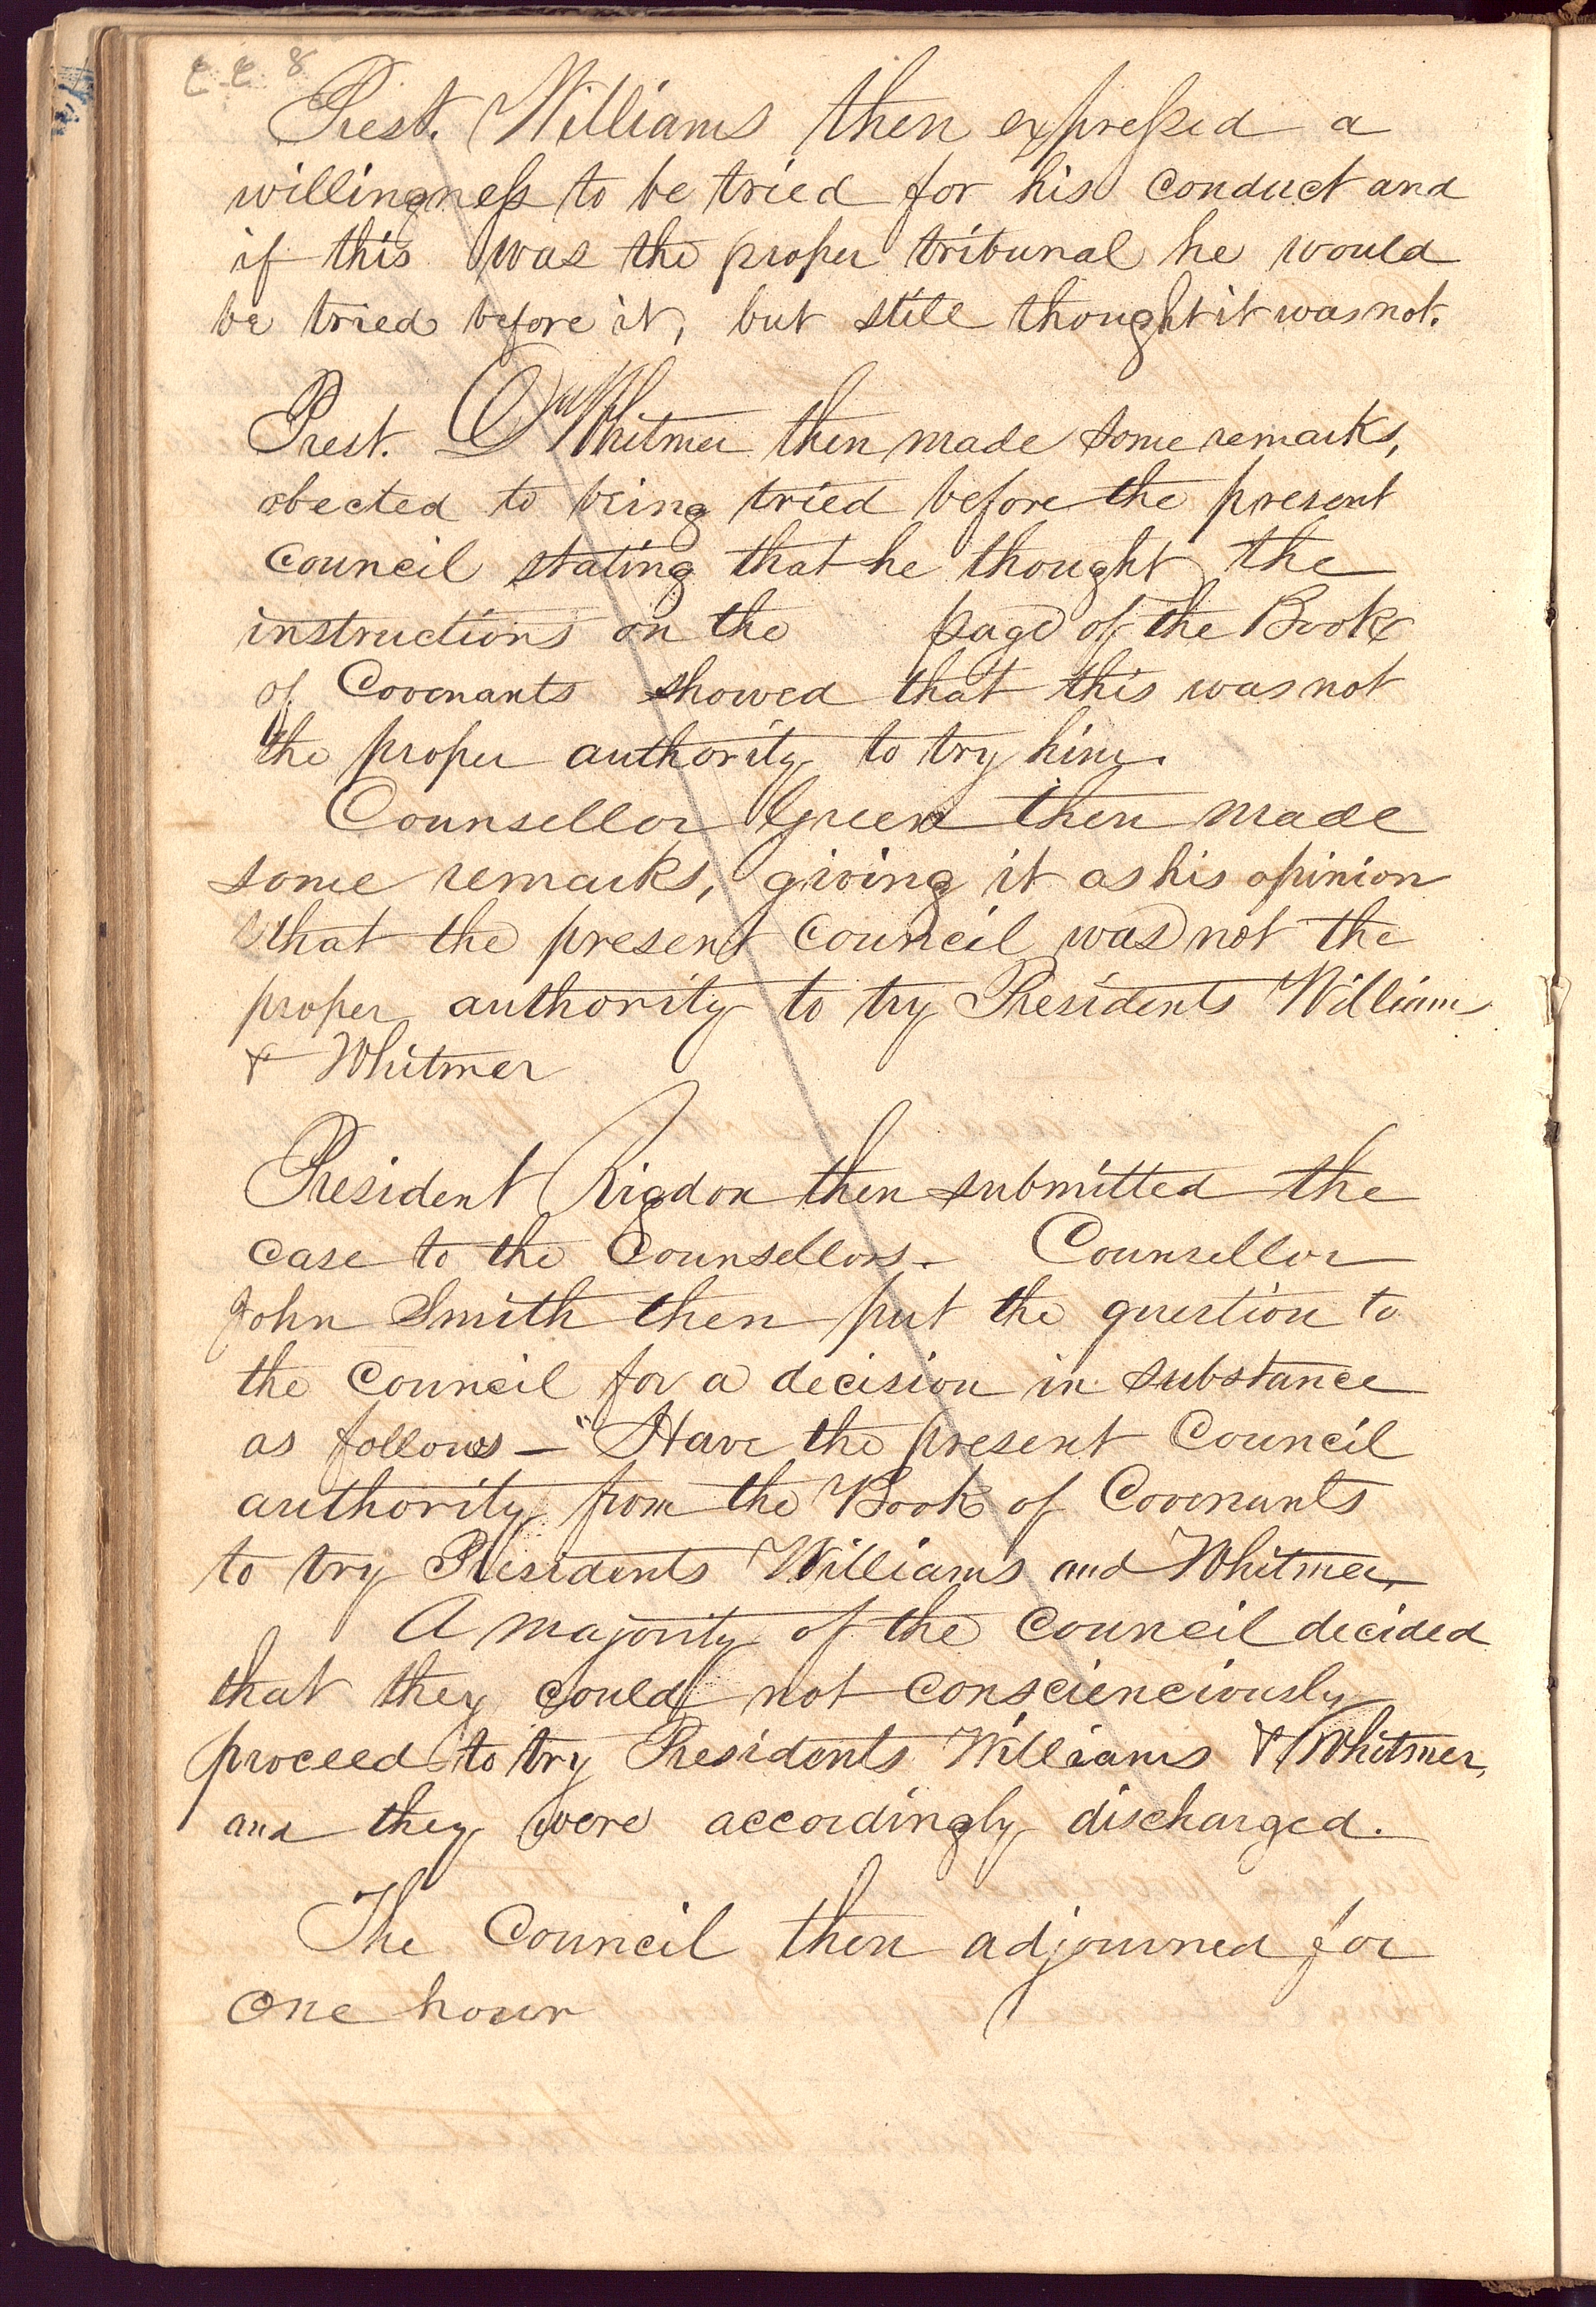 8
Prest. Williams then expressed a
willingness to be tried for his conduct and
if this was the proper tribunal he would
be tried before it, but still thought it was not.
Prest. D Whitmer then made some remarks,
obected to being tried before the present
council stating that he thought the
instructions on the page of the Book
of Covenants showed that this was not
the proper authority to try him.
Counsellor Green then made
some remarks, giving it as his opinion
that the present council was not the
proper authority to try Presidents Williams
& Whitmer
President Rigdon then submitted the
case to the Counsellors - Counsellor
John Smith then put the question to
the council for a decision in substance
as follows - "Have the present Council
authority from the Book of Covenants
to try Presidents Williams and Whitmer,
A majority of the council decided
that they could not conscienciously
proceed to try Presidents Williams & Whitmer,
and they were accordingly discharged.
The Council then adjourned for
one hour